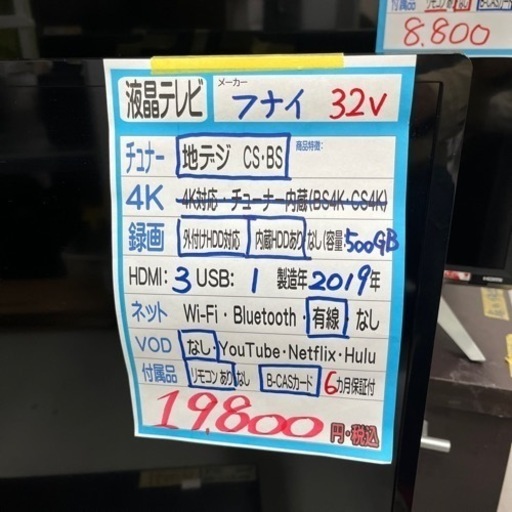 付属品 リモコン
8.800
液晶テレビ メーカー フナイ 32V
チュナー 地デジ CS・BS 商品特徴:
4K 4K対応・チューナー内蔵(BS4K・CS4K)
録画 外付けHDD対応 内蔵HDDあり なし(容量:500GB
HDMI: 3 USB: 1 製造年2019年
ネット Wi-Fi・Bluetooth・有線・なし
VOD なし・YouTube・Netflix・Hulu
付属品 リモコンあり なし B-CASカード 6カ月保証付
19,800 円・税込